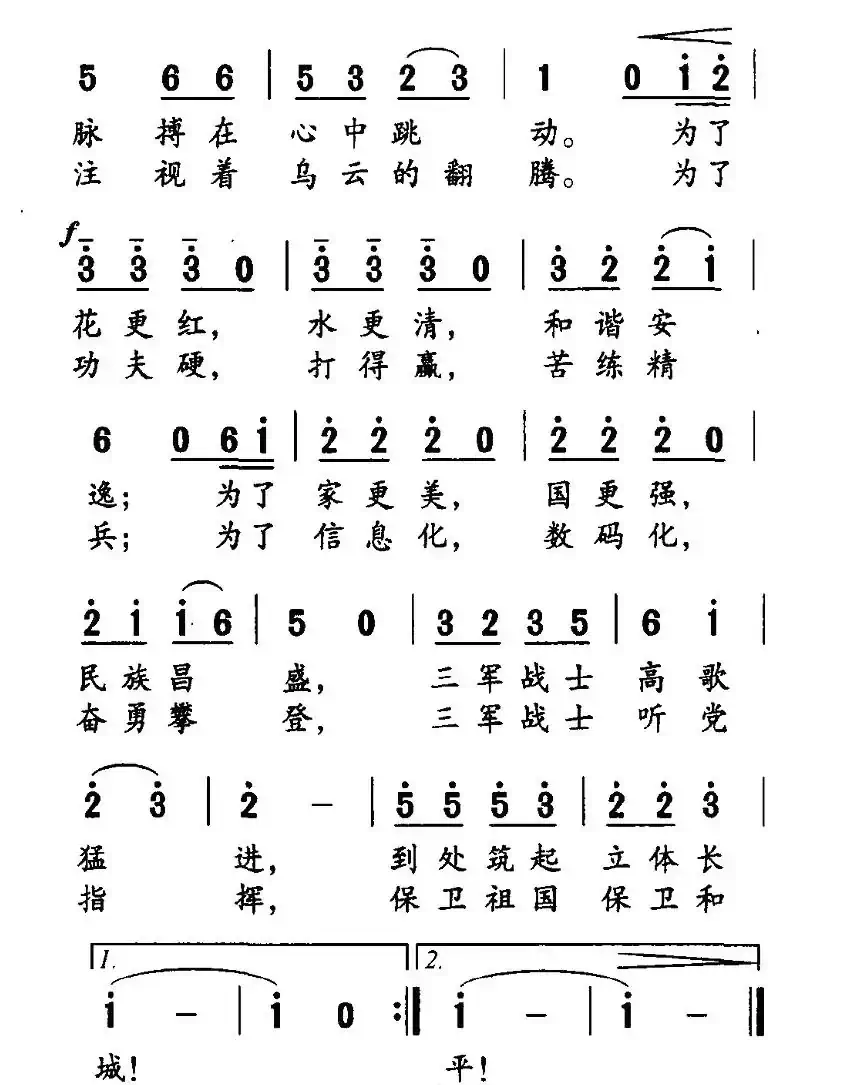 5 6 6 | 5 3 2 3 | 1 0 1 2 |
脉 搏 在 心 中 跳 动。 为 了
注 视 着 乌 云 的 翻 腾。 为 了
f
3 3 3 0 | 3 3 3 0 | 3 2 2 1 |
花 更 红, 水 更 清, 和 谐 安
功 夫 硬, 打 得 赢, 苦 练 精
6 0 6 1 | 2 2 2 0 | 2 2 2 0 |
逸; 为 了 家 更 美, 国 更 强,
兵; 为 了 信 息 化, 数 码 化,
2 1 1 6 | 5 0 | 3 2 3 5 | 6 1 |
民 族 昌 盛, 三 军 战 士 高 歌
奋 勇 攀 登, 三 军 战 士 听 党
2 3 | 2 – | 5 5 5 3 | 2 2 3 |
猛 进, 到 处 筑 起 立 体 长
指 挥, 保 卫 祖 国 保 卫 和
1. 2.
1 – | 1 0 :| 1 – | 1 – |
城! 平!